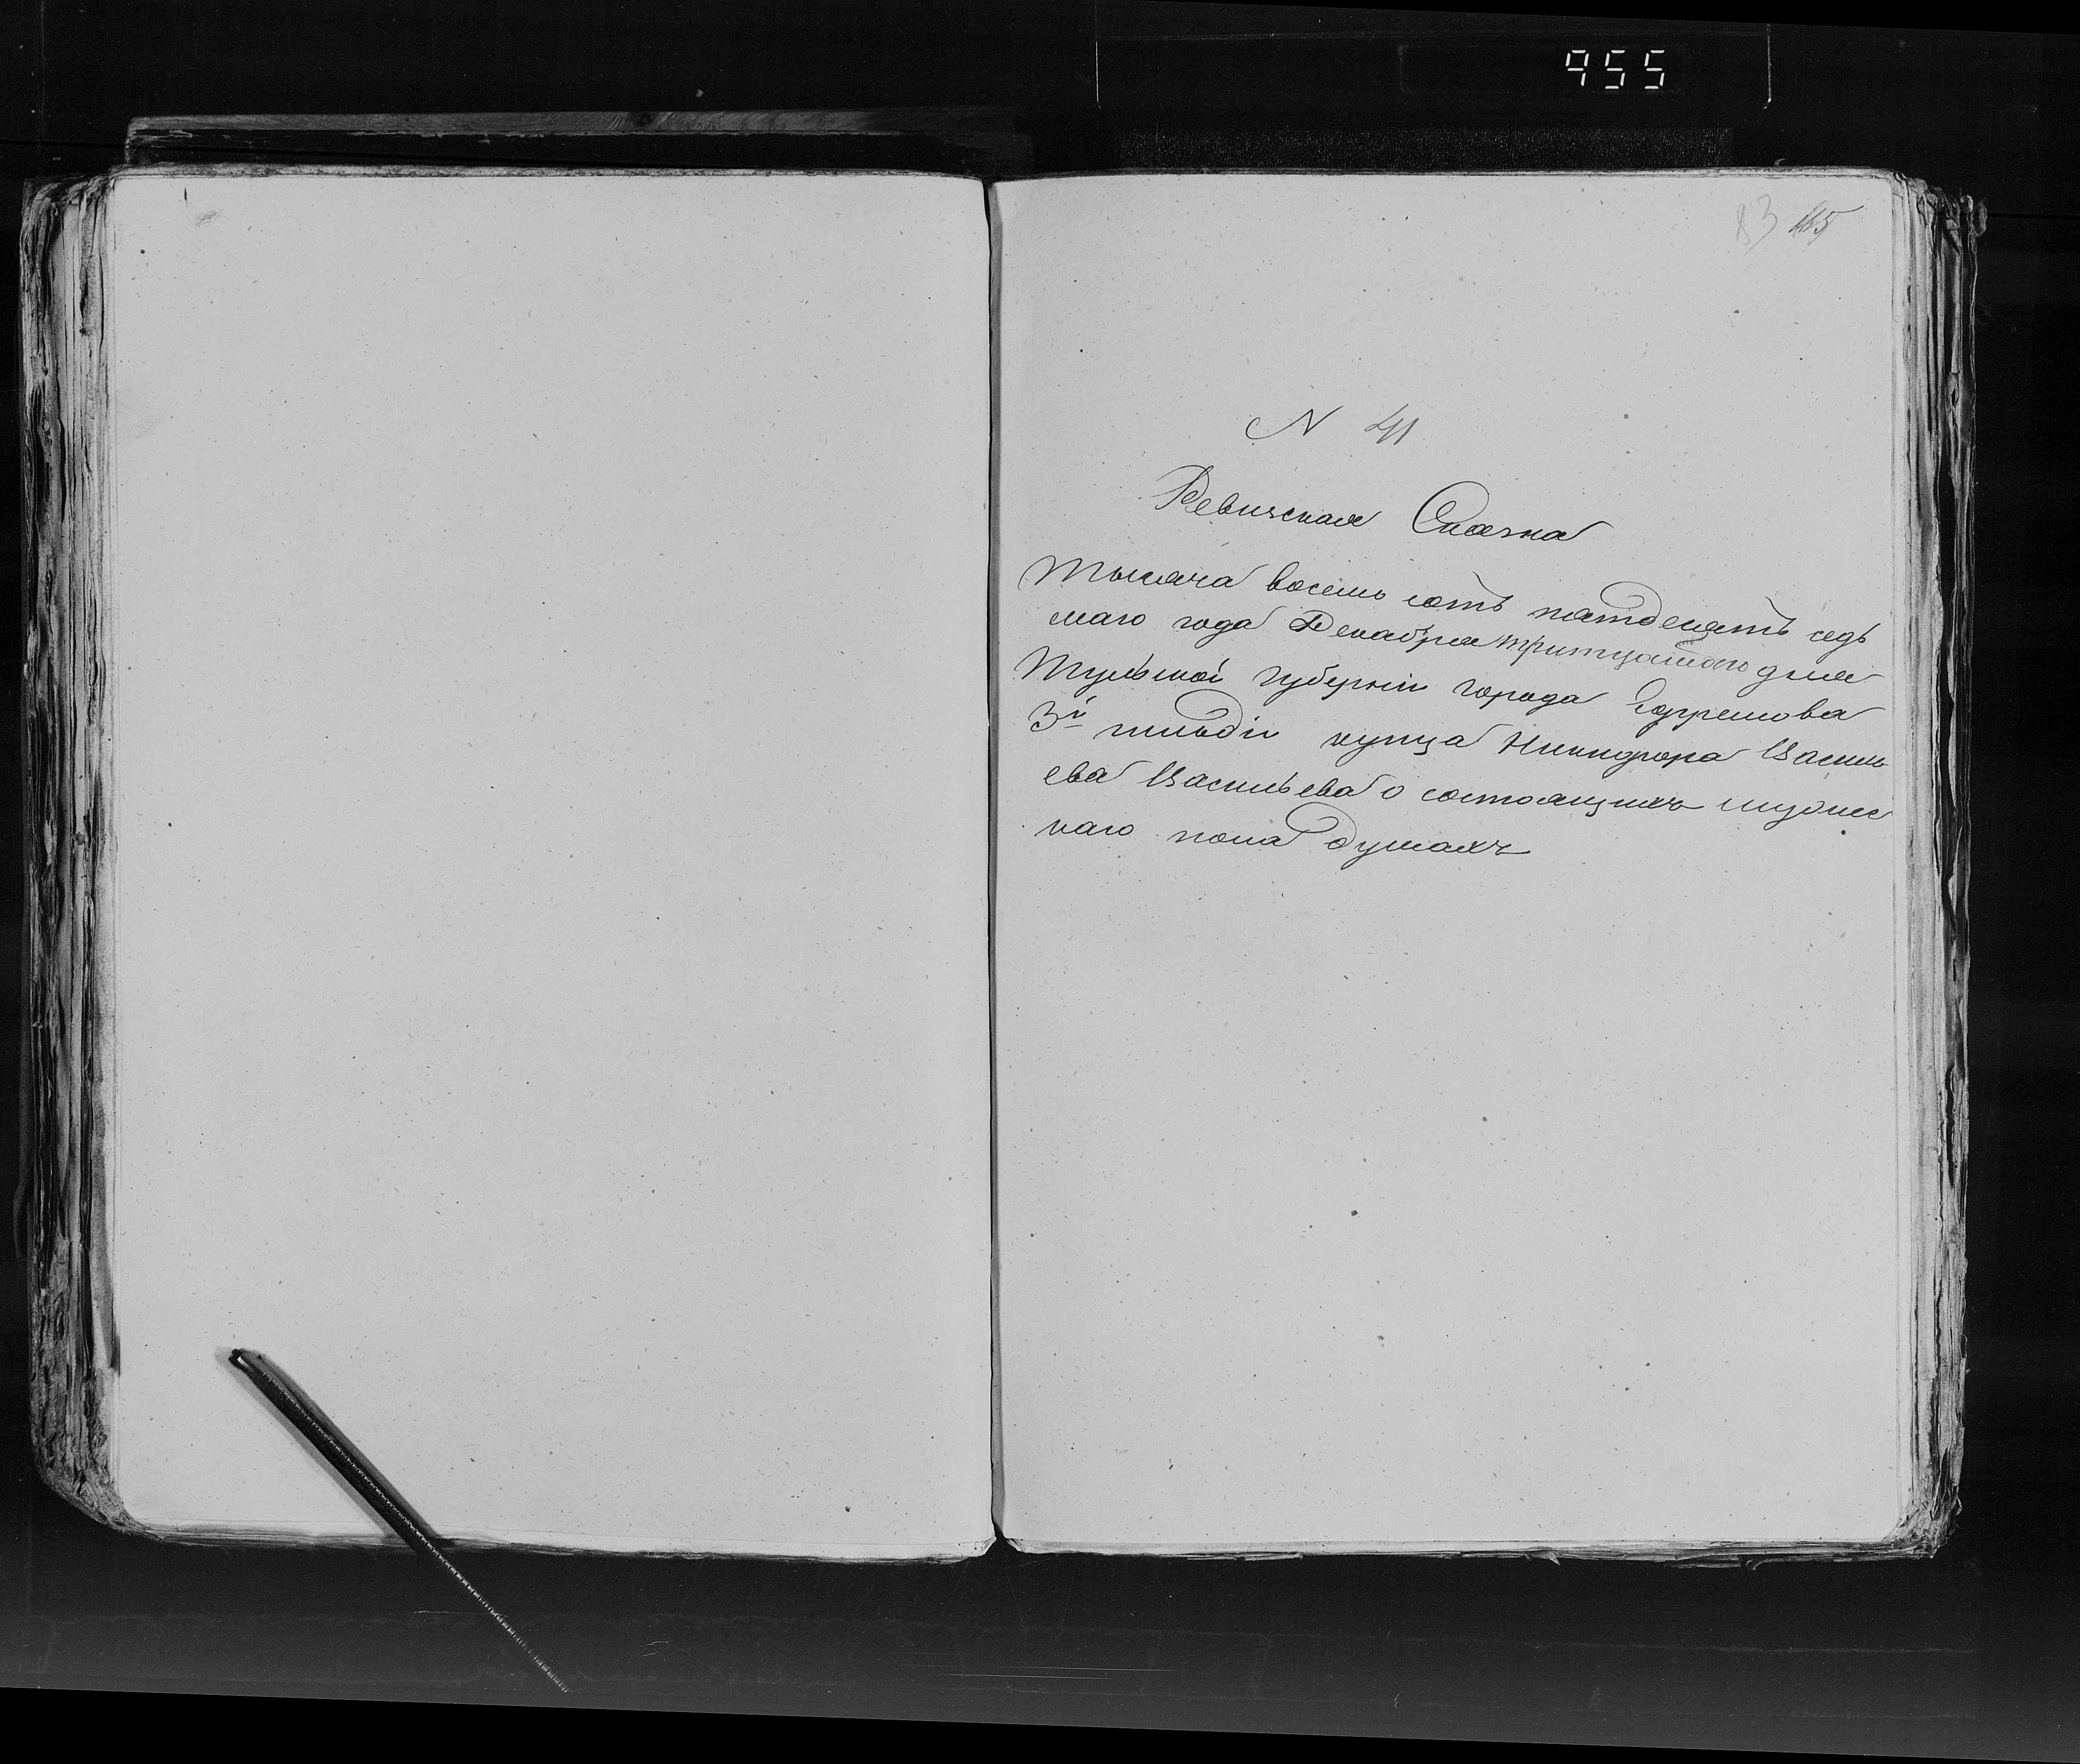 955
83
N 41
Ревизская Сказка
Тысяча восемь сотъ пятдесятъ седь
маго года Декабря тритцатаго дня
Тульской губерніи города Ефремова
3й гильдіи купца Никифора Василь
ева Васильева о состоящихъ мужес
каго пола душахъ